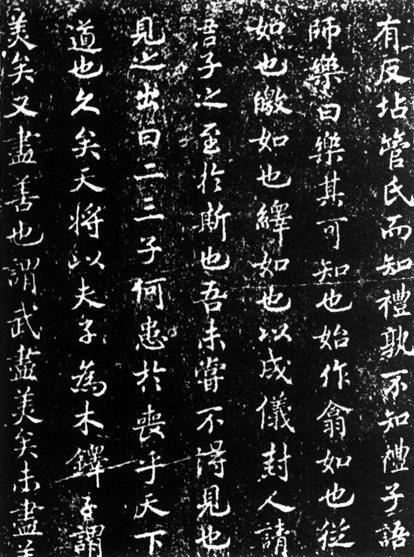 有反坫管氏而知禮孰不知禮子語
師樂曰樂其可知也始作翕如也從
如也皦如也繹如也以成儀封人請
吾子之至於斯也吾未嘗不得見也
見之出曰二三子何患於喪乎天下
道也久矣天将以夫子為木鐸子謂
美矣又盡善也謂武盡美矣未盡